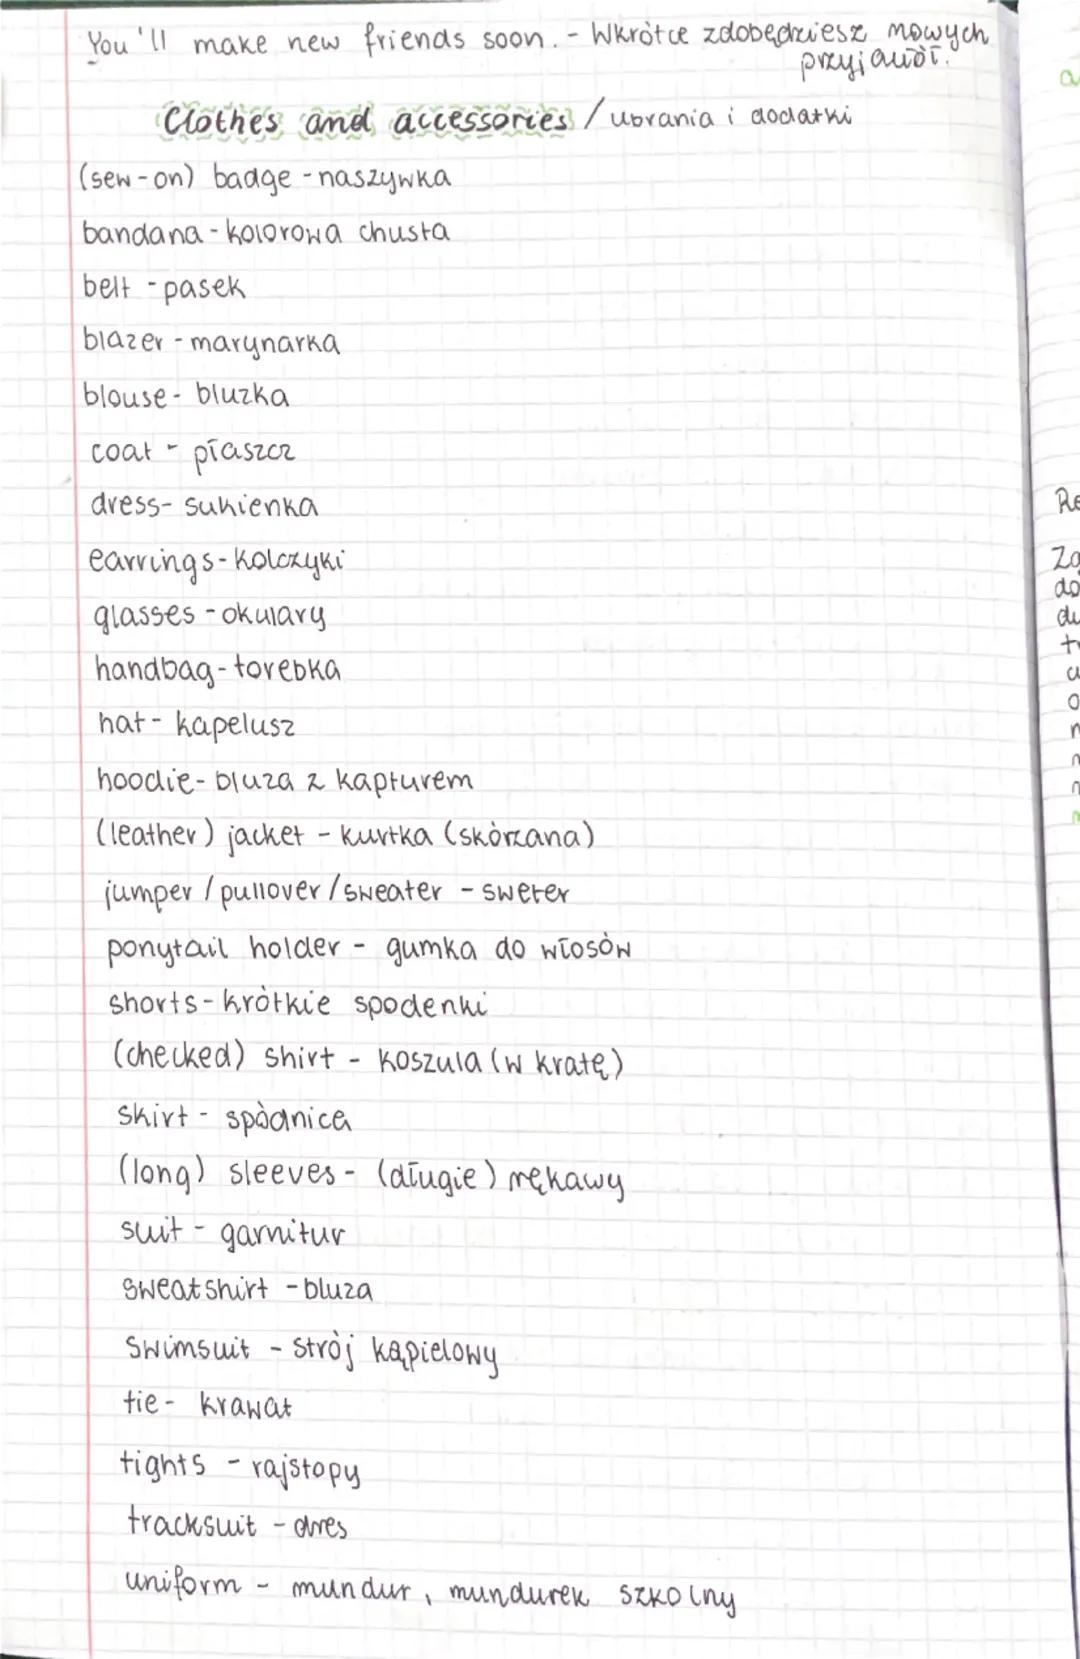 You'll make new friends soon. - Wkrótce zdobędziesz nowych
przyjaciół.
Clothes and accessories / ubrania i dodatki
(sew-on) badge - naszywka
bandana - kolorowa chusta
belt - pasek
blazer - marynarka
blouse - bluzka
coat - płaszcz
dress - sukienka
earrings - kolczyki
glasses - okulary
handbag - torebka
hat - kapelusz
hoodie - bluza z kapturem
(leather) jacket - kurtka (skórzana)
jumper / pullover / sweater - sweter
ponytail holder - gumka do włosów
shorts - krótkie spodenki
(checked) shirt - koszula (w kratę)
skirt - spódnica
(long) sleeves - (długie) rękawy
suit - garnitur
sweatshirt - bluza
swimsuit - strój kąpielowy
tie - krawat
tights - rajstopy
tracksuit - dres
uniform - mundur, mundurek szkolny